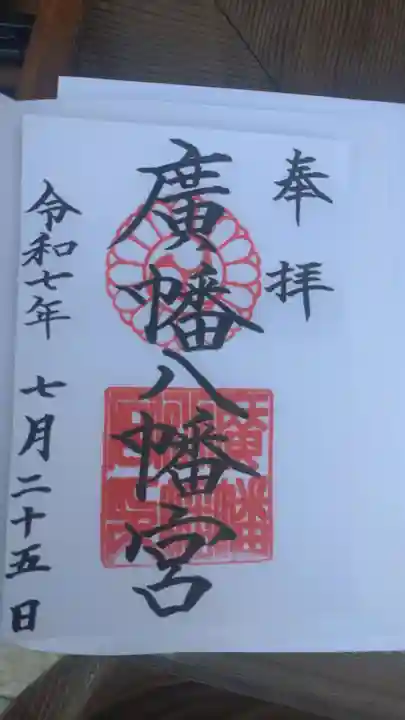 奉拝
廣幡八幡宮
令和七年七月二十五日